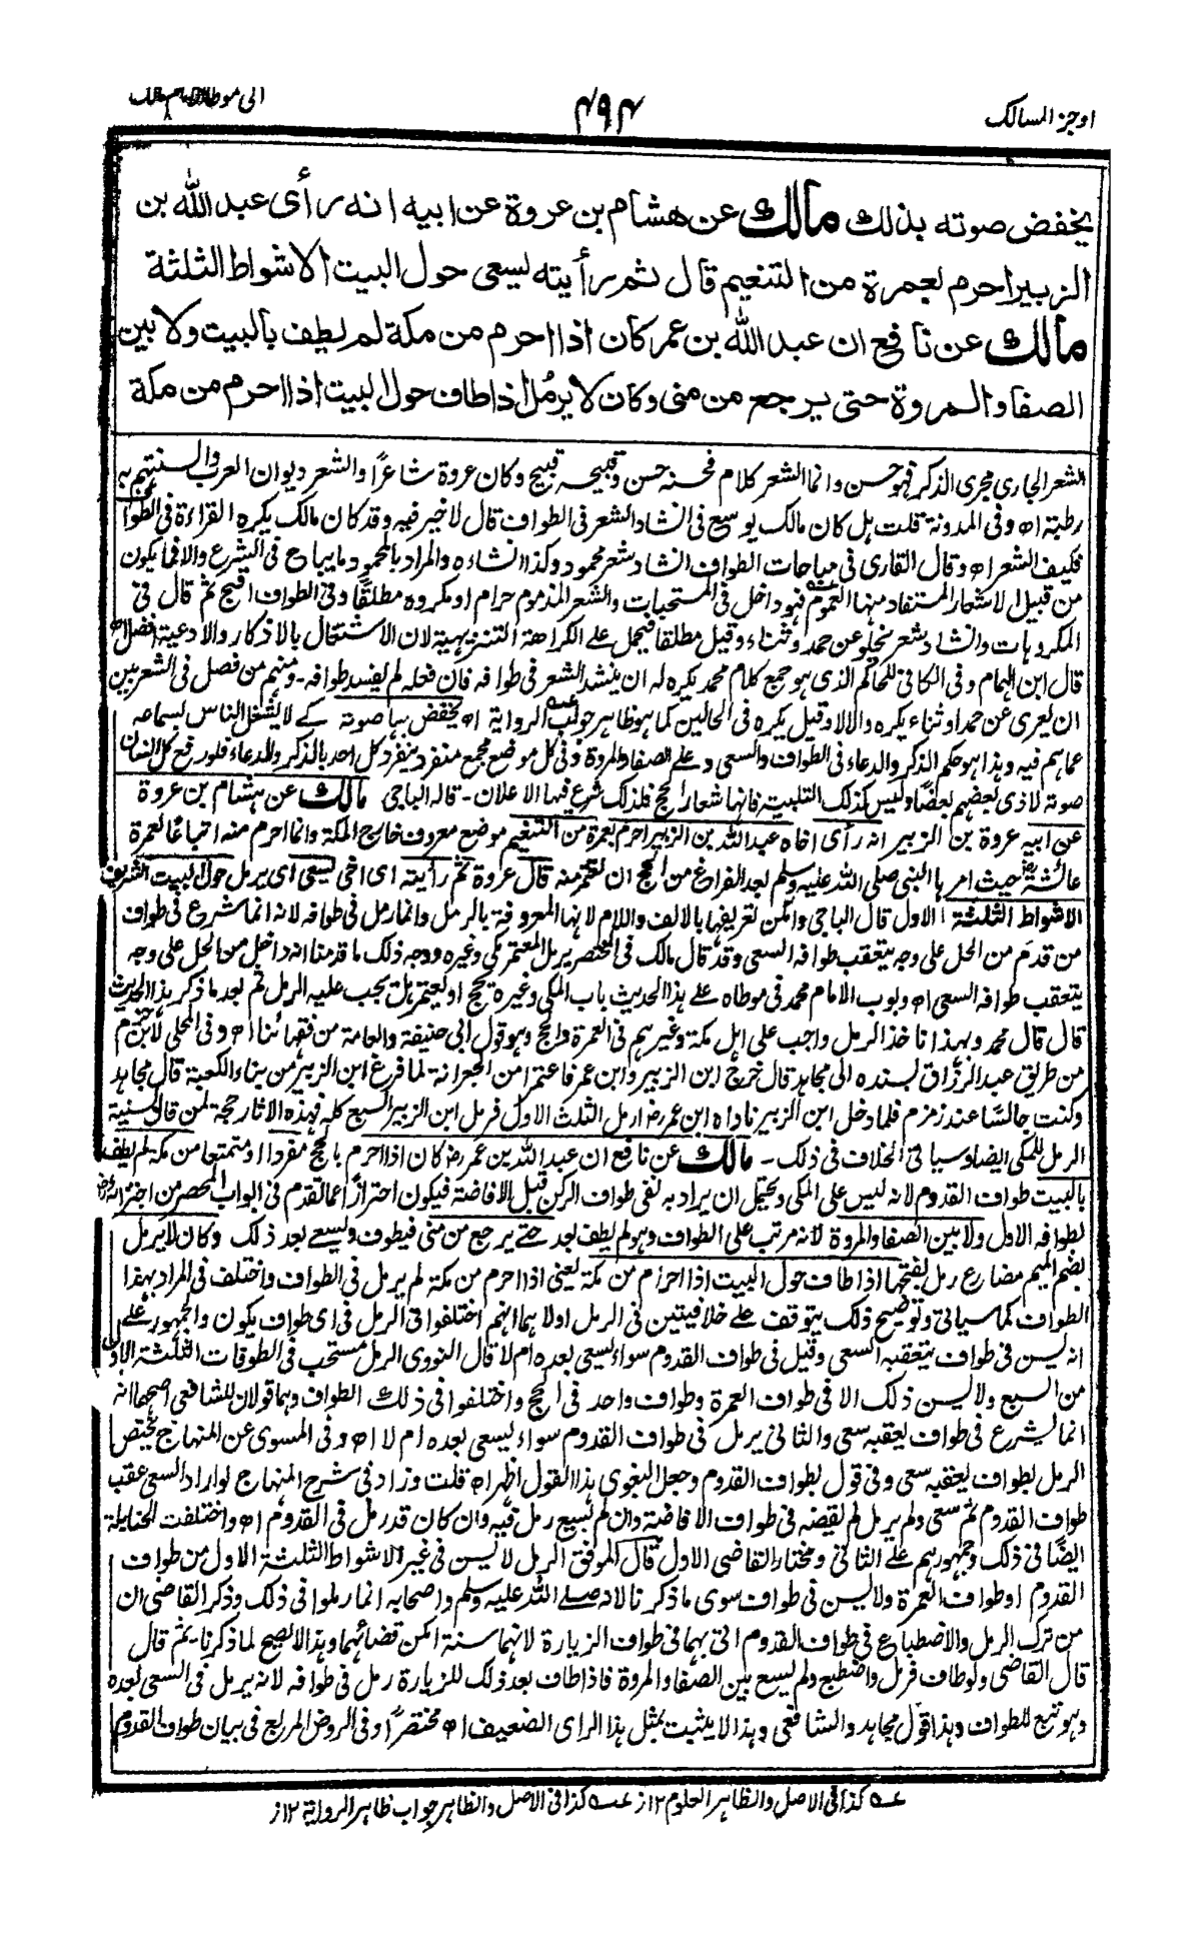 اوجز المسالك
۴۹۴
الى موطا الامام مالك
يخفض صوته بذلك مالك عن هشام بن عروة عن ابيه انه رأى عبد الله بن
الزبير احرم لعمرة من التنعيم قال ثم رأيته يسعى حول البيت الاشواط الثلثة
مالك عن نافع ان عبد الله بن عمر كان اذا احرم من مكة لم يطف بالبيت ولا بين
الصفا والمروة حتى يرجع من منى وكان لا يرمُل اذا طاف حول البيت اذا احرم من مكة
الشعر الجارى مجرى الذكر فهو حسن وانما الشعر كلام فحسنه حسن وقبيحه قبيح وكان عروة شاعرًا والشعر ديوان العرب والسنتهم به
رطبة اه وفى المدونة قلت هل كان مالك يوسع فى انشاد الشعر فى الطواف قال لا خير فيه وقد كان مالك يكره القراءة فى الطواف
فكيف الشعر اه وقال القارى فى مباحات الطواف انشاد شعر محمود وكذا انشاءه والمراد بالمحمود ما يباح فى الشرع والا فما يكون
من قبيل الاشعار المستفاد منها العموم فهو داخل فى المستحبات والشعر المذموم حرام او مكروه مطلقًا وفى الطواف اقبح ثم قال فى
المكروهات وانشاد شعر يخلو عن حمد وثناء وقيل مطلقا فيحمل على الكراهة التنزيهية لان الاشتغال بالاذكار والادعية افضل اه
قال ابن الهمام وفى الكافى للحاكم الذى هو جمع كلام محمد يكره له ان ينشد الشعر فى طوافه فان فعله لم يفسد طوافه۔ ومنهم من فصل فى الشعر بين
ان يعرى عن حمد او ثناء يكره والا لا وقيل يكره فى الحالين كما هو ظاهر جواب الرواية اه يخفض بها صوته كے لا يشغل الناس لسماعه
عما هم فيه وهذا هو حكم الذكر والدعاء فى الطواف والسعى وعلے الصفا والمروة وفى كل موضع مجمع منفرد ينفرد كل احد بالذكر والدعاء فلو رفع كل انسان
صوته لاذى بعضهم بعضًا وليس كذلك التلبية فانها شعار الحج فلذلك شرع فيها الاعلان۔ قاله الباجى مالك عن هشام بن عروة
عن ابيه عروة بن الزبير انه رأى اخاه عبد الله بن الزبير احرم بعمرة من التنعيم موضع معروف خارج المكة وانما احرم منه اتباعًا لعمرة
عائشة حيث امرها النبى صلى الله عليه وسلم بعد الفراغ من الحج ان تعتمر منه قال عروة ثم رأيته اى اخى يسعى اى يرمل حول البيت الشريف
الاشواط الثلثة الاول قال الباجى واكن تعريفها بالالف واللام لانها المعروفة بالرمل وانما رمل فى طوافه لانه انما شرع فى طواف
من قدم من الحل على وجه يتعقب طوافه السعى وقد قال مالك فى المختصر يرمل المعتمر مكى وغيره ووجه ذلك ما قدمنا انه داخل من الحل على وجه
يتعقب طوافه السعى اه وبوب الامام محمد فى موطاه علے هذا الحديث باب المكى وغيره يحج او يعتمر هل يجب عليه الرمل ثم بعد ما ذكر هذا الحديث
قال قال محمد وبهذا ناخذ الرمل واجب على اهل مكة وغيرهم فى العمرة والحج وهو قول ابى حنيفة والعامة من فقهائنا اه وفى المحلى لابن حزم
من طريق عبد الرزاق بسنده الى مجاهد قال خرج ابن الزبير وابن عمر فاعتمرا من الجعرانة لما فرغ ابن الزبير من بناء الكعبة قال مجاهد
وكنت جالسًا عند زمزم فلما دخل ابن الزبير ناداه ابن عمر رض ارمل الثلث الاول فرمل ابن الزبير السبع كله فهذه الاثار حجة لمن قال بسنية
الرمل للمكى ايضا وسياتى الخلاف فى ذلك۔ مالك عن نافع ان عبد الله بن عمر رض كان اذا احرم بالحج مفردا او متمتعا من مكة لم يطف
بالبيت طواف القدوم لانه ليس على المكى ويحتمل ان يراد به نفى طواف الركن قبل الافاضة فيكون احترازًا عما تقدم فى ابواب المحصر من اجزائه
لطوافه الاول ولا بين الصفا والمروة لانه مرتب على الطواف وهو لم يطف بعد حتے يرجع من منى فيطوف ويسعے بعد ذلك وكان لا يرمل
بضم الميم مضارع رمل بفتحها اذا طاف حول البيت اذا احرم من مكة يعنى اذا احرم من مكة لم يرمل فى الطواف واختلف فى المراد بهذا
الطواف كما سياتى وتوضيح ذلك يتوقف علے خلافيتين فى الرمل اولاهما انهم اختلفوا فى الرمل فى اى طواف يكون والجمهور علے
انه يسن فى طواف يتعقبه السعى وقيل فى طواف القدوم سواء يسعى بعده ام لا قال النووى الرمل مستحب فى الطوفات الثلثة الاول
من السبع ولا يسن ذلك الا فى طواف العمرة وطواف واحد فى الحج واختلفوا فى ذلك الطواف وهما قولان للشافعى اصحهما انه
انما يشرع فى طواف يعقبه سعى والثانى يرمل فى طواف القدوم سواء يسعى بعده ام لا اه وفى المسوى عن المنهاج يختص
الرمل بطواف يعقبه سعى وفى قول بطواف القدوم وجعل البغوى هذا القول اظهر اه قلت وزاد فى شرح المنهاج لو اراد السعى عقب
طواف القدوم ثم سعى ولم يرمل لم يقضه فى طواف الافاضة وان لم يسع رمل فيه وان كان قد رمل فى القدوم اه واختلفت الحنابلة
ايضًا فى ذلك وجمهورهم علے الثانى ومختار القاضى الاول قال الموفق الرمل لا يسن فى غير الاشواط الثلثة الاول من طواف
القدوم او طواف العمرة ولا يسن فى طواف سوى ما ذكرنا لانه صلے الله عليه وسلم واصحابه انما رملوا فى ذلك وذكر القاضى ان
من ترك الرمل والاضطباع فى طواف القدوم اتى بهما فى طواف الزيارة لانهما سنة امكن قضائهما وهذا لا يصح لما ذكرنا۔ ثم قال
قال القاضى ولو طاف فرمل واضطبع ولم يسع بين الصفا والمروة فاذا طاف بعد ذلك للزيارة رمل فى طوافه لانه يرمل فى السعى بعده
وهو تبع للطواف وهذا قول مجاهد والشافعى وهذا لا يثبت بمثل هذا الراى الضعيف اه مختصرًا وفى الروض المربع فى بيان طواف القدوم
عــه كذا فى الاصل والظاهر العلوم ۱۲ز عــه كذا فى الاصل والظاهر جواب ظاهر الرواية ۱۲ز